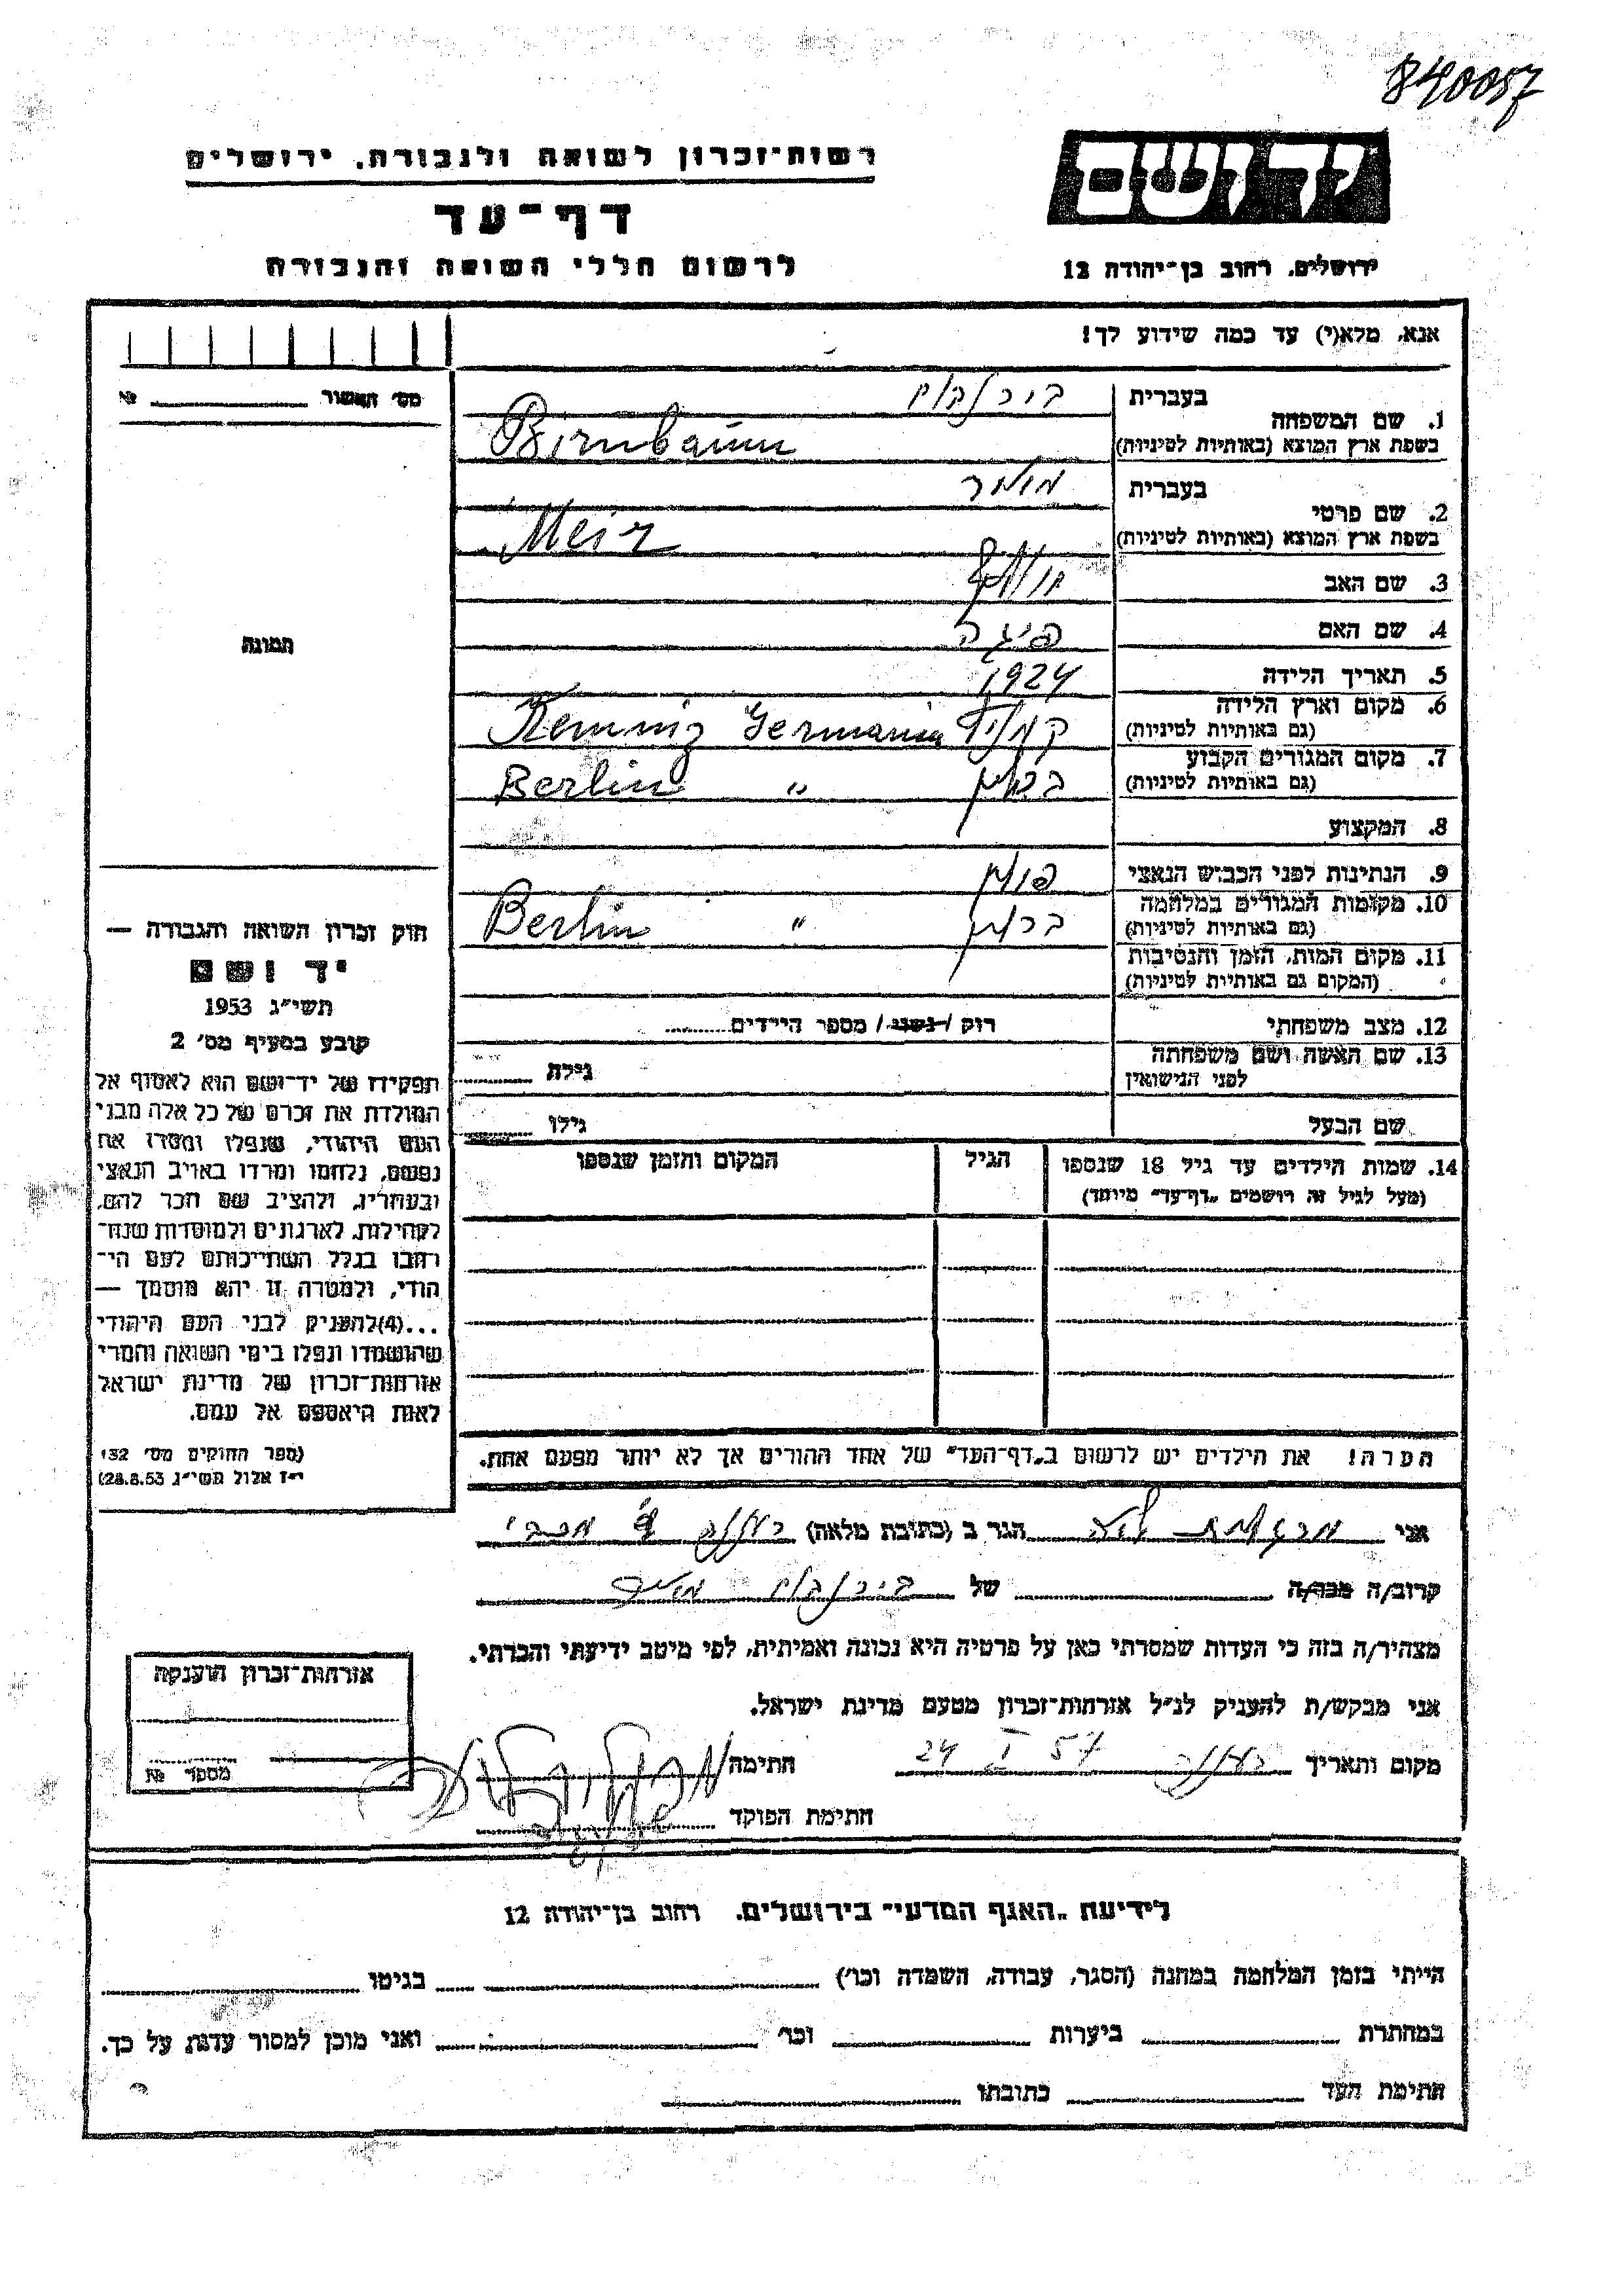 840057
רשות־זכרון לשואה ולגבורה. ירושלים
יד ושם
דף־עד
לרשום חללי השואה והגבורה
ירושלים. רחוב בן־יהודה 12
אנא, מלא(י) עד כמה שידוע לך!
מס' האשור № 
1. שם המשפחה
בעברית בירנבוים
בשפת ארץ המוצא (באותיות לטיניות) Birnbaum
2. שם פרטי
בעברית מאיר
בשפת ארץ המוצא (באותיות לטיניות) Meir
3. שם האב
4. שם האם פיגה
תמונה
5. תאריך הלידה 1924
6. מקום וארץ הלידה
(גם באותיות לטיניות) קמניץ Kemniz Germania
7. מקום המגורים הקבוע
(גם באותיות לטיניות) ברלין Berlin "
8. המקצוע
9. הנתינות לפני הכבוש הנאצי פולין
10. מקומות המגורים במלחמה
(גם באותיות לטיניות) ברלין " Berlin
11. מקום המות, הזמן והנסיבות
(המקום גם באותיות לטיניות)
12. מצב משפחתי רוק / נשוי / מספר הילדים
13. שם האשה ושם משפחתה
לפני הנישואין
גילה
שם הבעל גילו
14. שמות הילדים עד גיל 18 שנספו
(מעל לגיל זה רושמים „דף־עד" מיוחד)
הגיל
המקום והזמן שנספו
חוק זכרון השואה והגבורה —
יד ושם
תשי"ג 1953
קובע בסעיף מס' 2
תפקידו של יד־ושם הוא לאסוף אל
המולדת את זכרם של כל אלה מבני
העם היהודי, שנפלו ומסרו את
נפשם, נלחמו ומרדו באויב הנאצי
ובעוזריו, ולהציב שם וזכר להם,
לקהילות, לארגונים ולמוסדות שנח־
רבו בגלל השתייכותם לעם הי־
הודי, ולמטרה זו יהא מוסמך —
...(4)להעניק לבני העם היהודי
שהושמדו ונפלו בימי השואה והמרי
אזרחות־זכרון של מדינת ישראל
לאות היאספם אל עמם.
(ספר החוקים מס' 132
י"ז אלול תשי"ג 28.8.53)
הערה! את הילדים יש לרשום ב„דף־העד" של אחד ההורים אך לא יותר מפעם אחת.
אני הגר ב (כתובת מלאה)
קרוב/ה מכר/ה של בירנבוים מאיר
מצהיר/ה בזה כי העדות שמסרתי כאן על פרטיה היא נכונה ואמיתית, לפי מיטב ידיעתי והכרתי.
אני מבקש/ת להעניק לנ"ל אזרחות־זכרון מטעם מדינת ישראל.
מקום ותאריך 24 I 57 חתימה
חתימת הפוקד
אזרחות־זכרון הוענקה
מספר №
לידיעת „האגף המדעי" בירושלים. רחוב בן־יהודה 12
הייתי בזמן המלחמה במחנה (הסגר, עבודה, השמדה וכו') בגיטו
במחתרת ביערות וכו' ואני מוכן למסור עדות על כך.
חתימת העד כתובתו